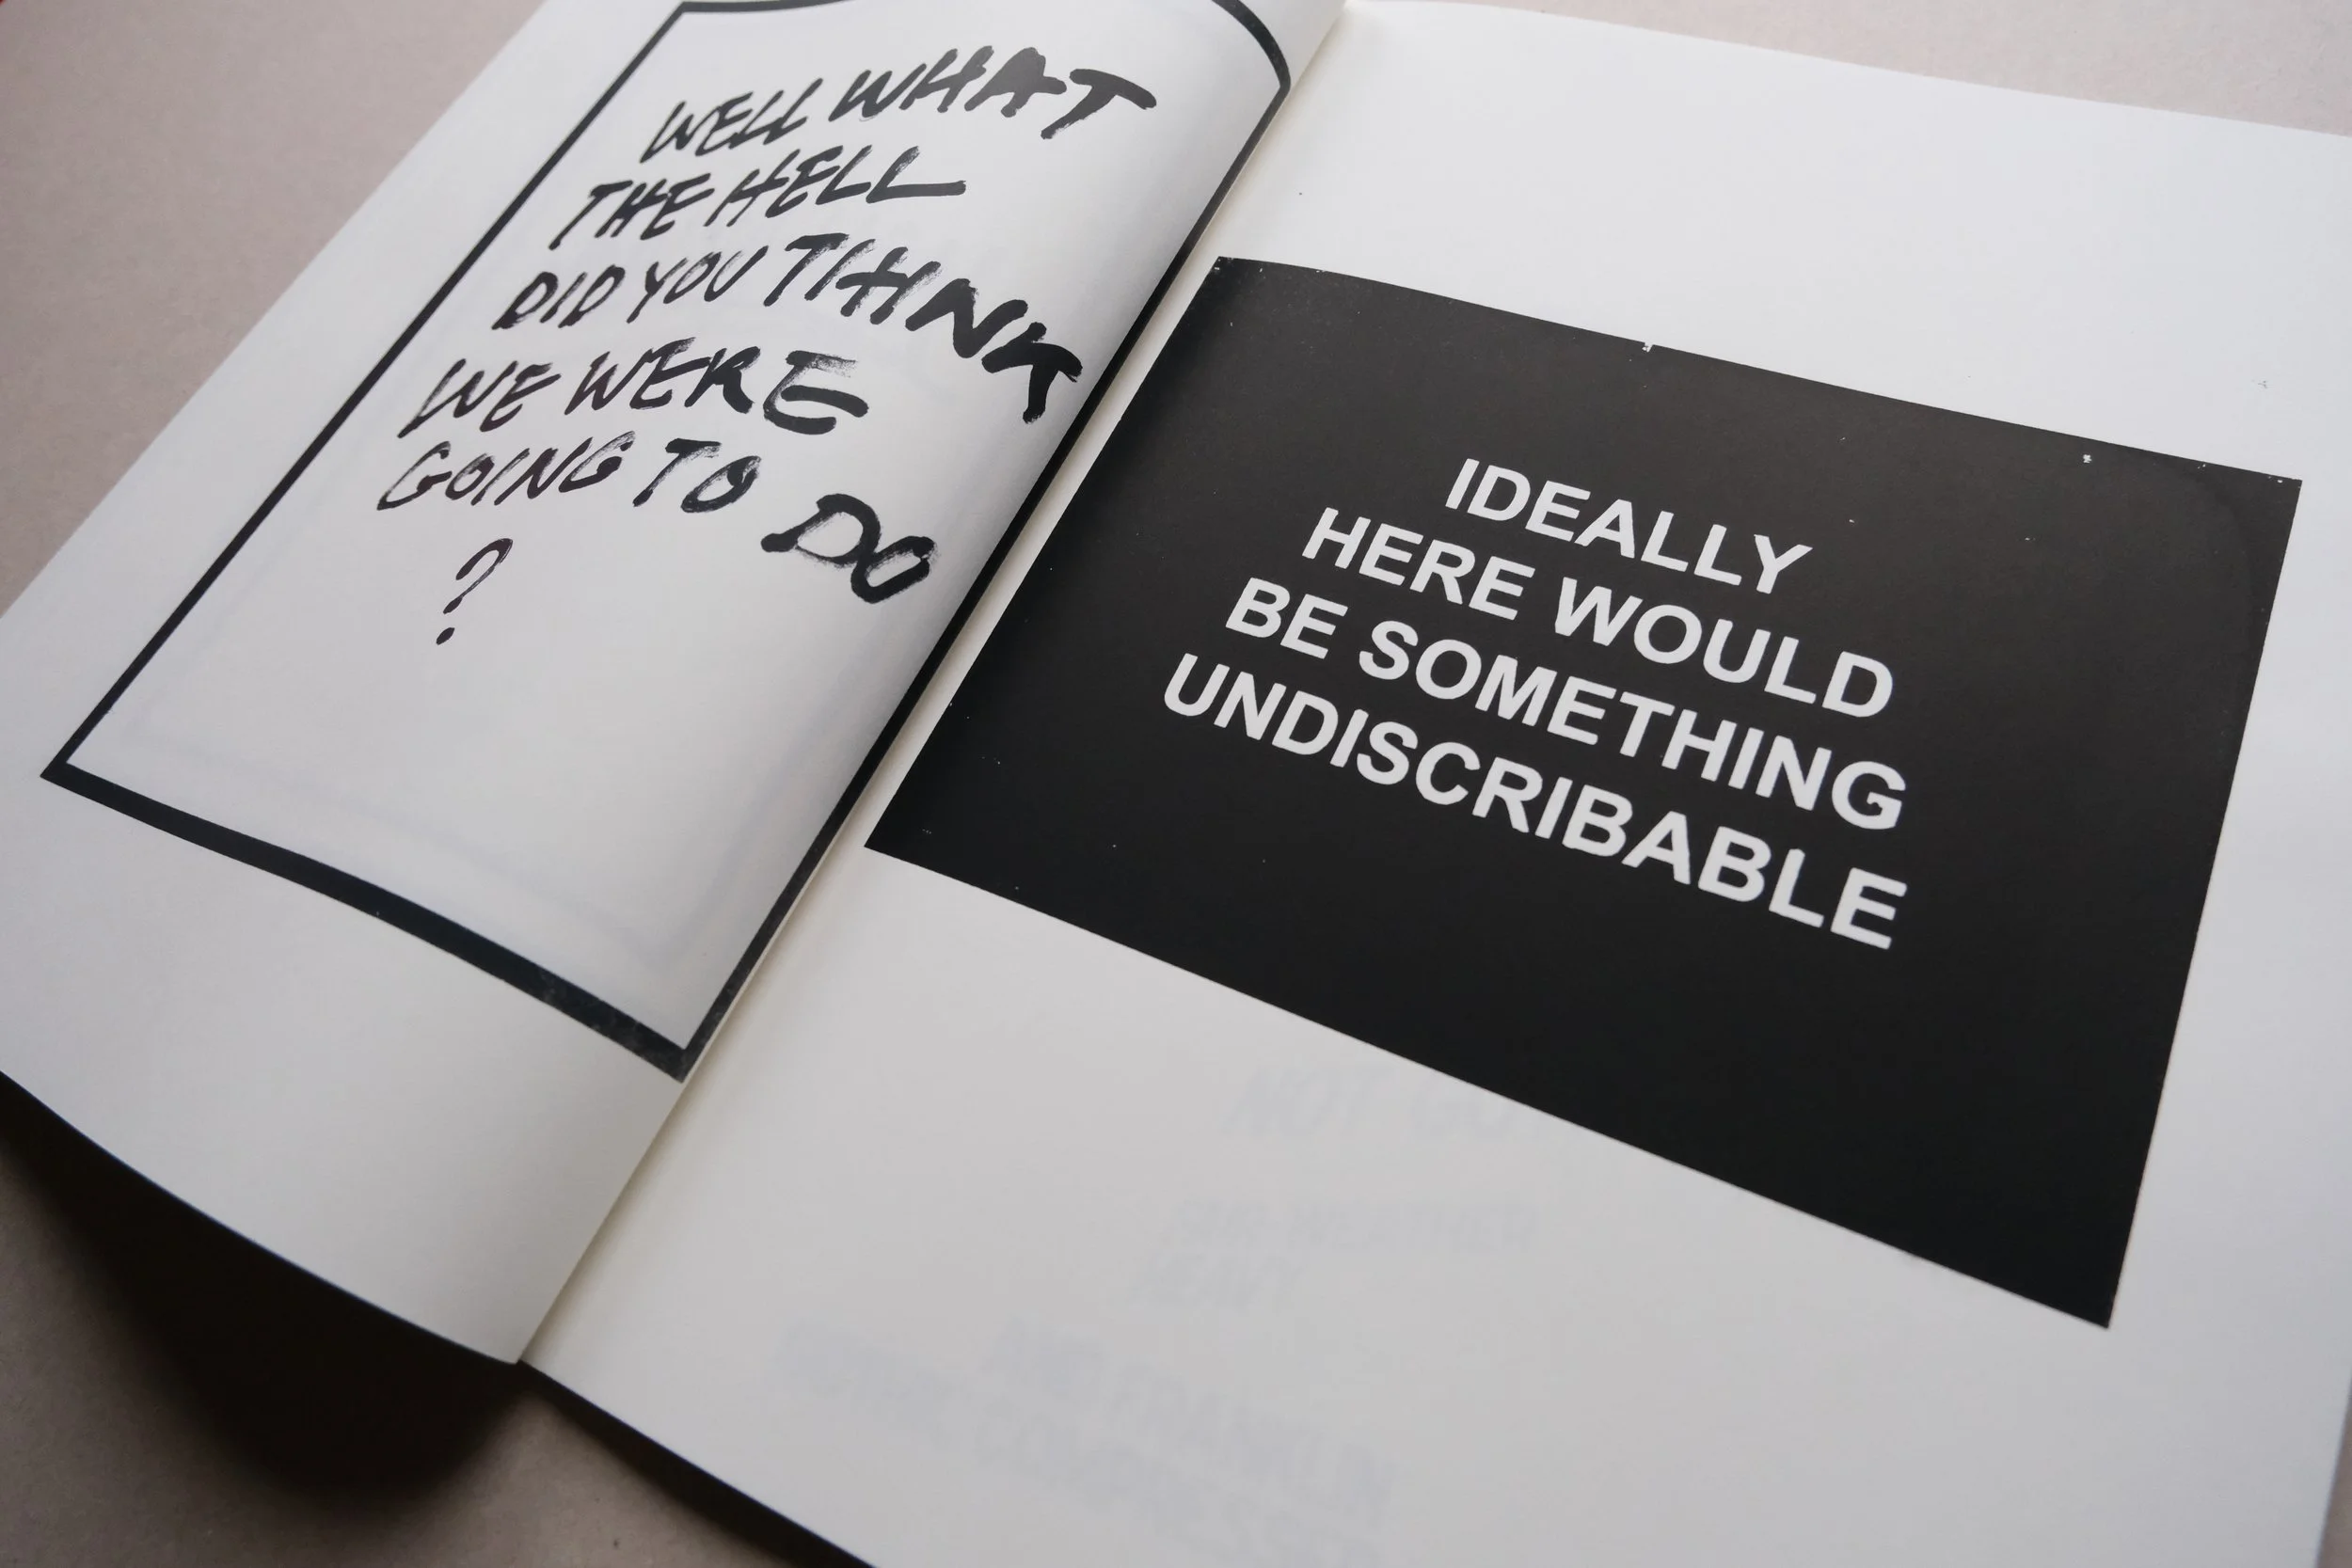 WELL WHAT
THE HELL
DID YOU THINK
WE WERE
GOING TO DO
?
IDEALLY
HERE WOULD
BE SOMETHING
UNDISCRIBABLE